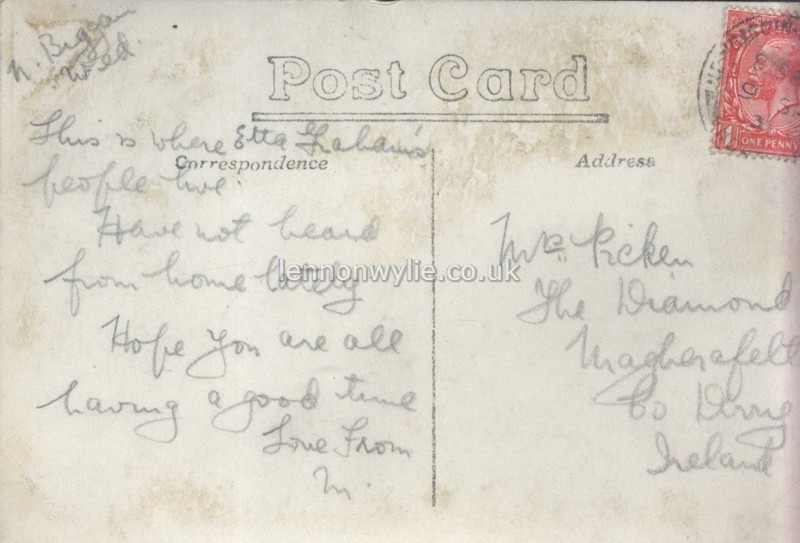 N. Biggar
Wed.
Post Card
This is where Etta Graham's
Correspondence
people live.
Have not heard
from home lately
Hope you are all
having a good time
Love From
M.
Address
Mrs. Picken
The Diamond
Magherafelt
Co Derry
Ireland
ONE PENNY
lennonwylie.co.uk